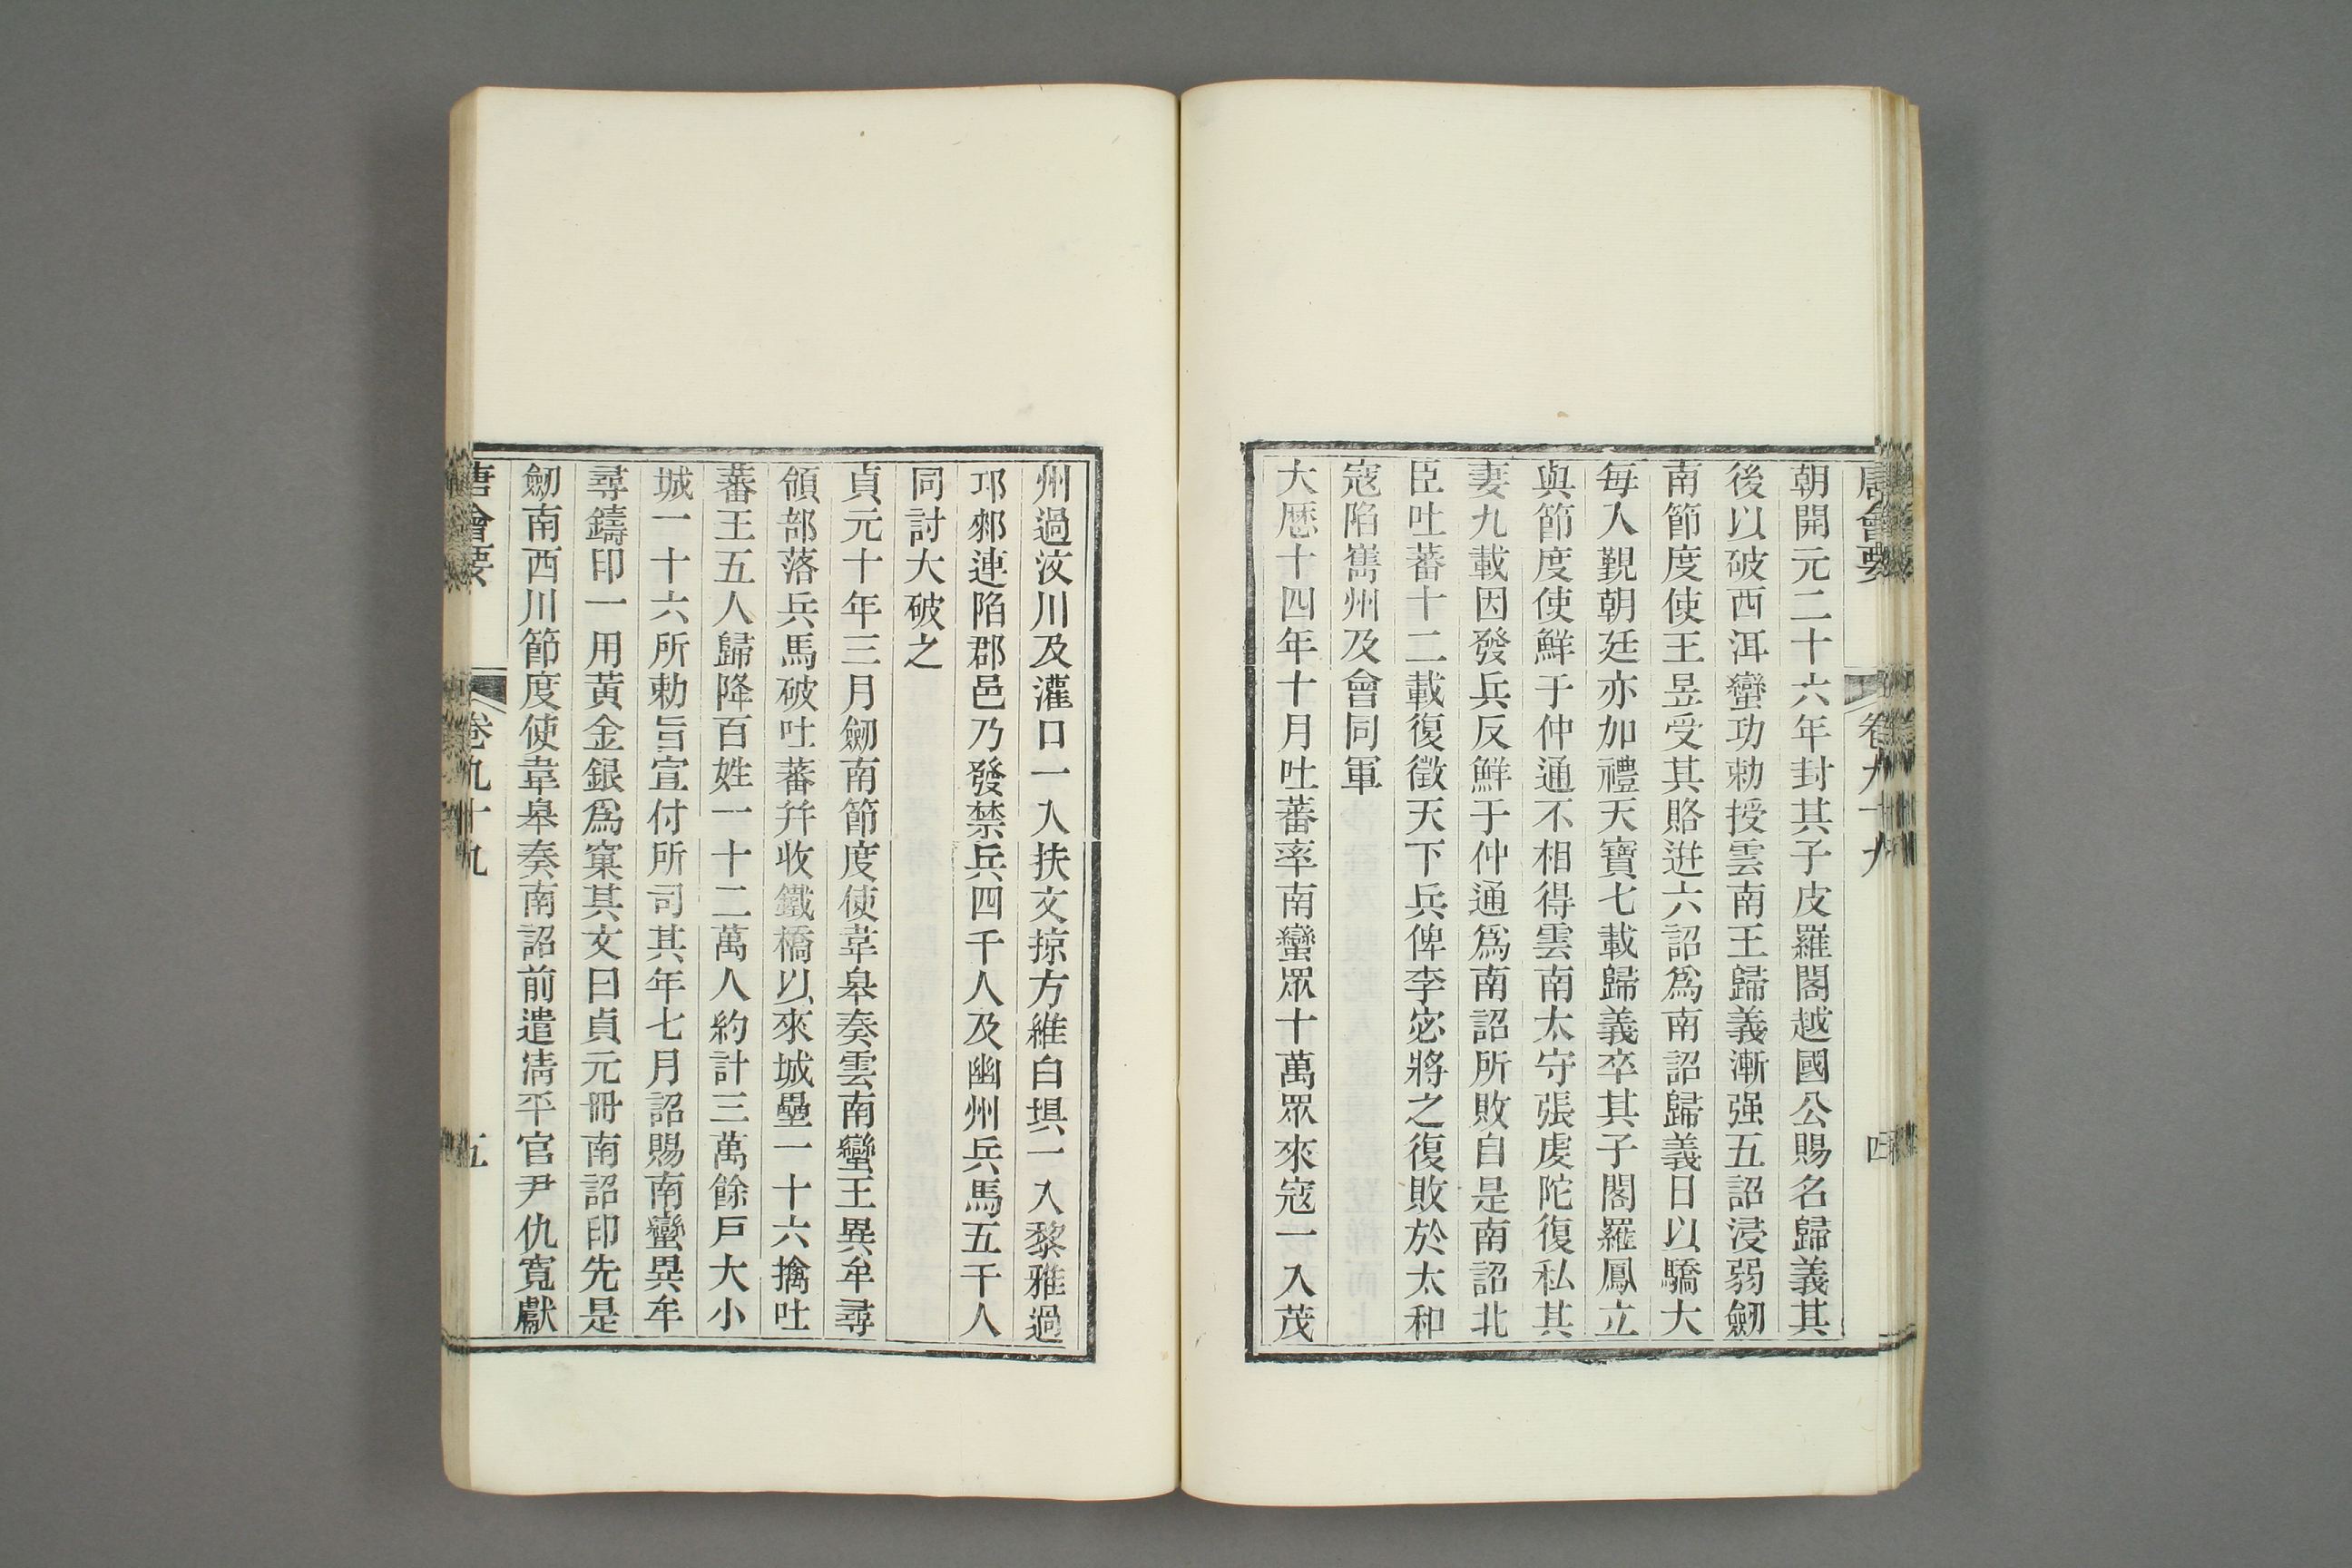 唐會要 卷九十九 四
朝開元二十六年封其子皮羅閣越國公賜名歸義其
後以破西洱蠻功勅授雲南王歸義漸强五詔浸弱劒
南節度使王昱受其賂逰六詔爲南詔歸義日以驕大
每入覲朝廷亦加禮天寶七載歸義卒其子閣羅鳳立
與節度使鮮于仲通不相得雲南太守張虔陀復私其
妻九載因發兵反鮮于仲通爲南詔所敗自是南詔北
臣吐蕃十二載復徵天下兵俾李宓將之復敗於太和
寇陷嶲州及會同軍
大厯十四年十月吐蕃率南蠻眾十萬眾來寇一入茂
州過汶川及灌口一入扶文掠方維白㙉一入黎雅過
邛郲連陷郡邑乃發禁兵四千人及幽州兵馬五千人
同討大破之
貞元十年三月劒南節度使韋皋奏雲南蠻王異牟尋
領部落兵馬破吐蕃幷收鐵橋以來城壘一十六擒吐
蕃王五人歸降百姓一十二萬人約計三萬餘戸大小
城一十六所勅旨宣付所司其年七月詔賜南蠻異牟
尋鑄印一用黃金銀爲窠其文曰貞元冊南詔印先是
劒南西川節度使韋皋奏南詔前遣淸平官尹仇寬獻
唐會要 卷九十九 五